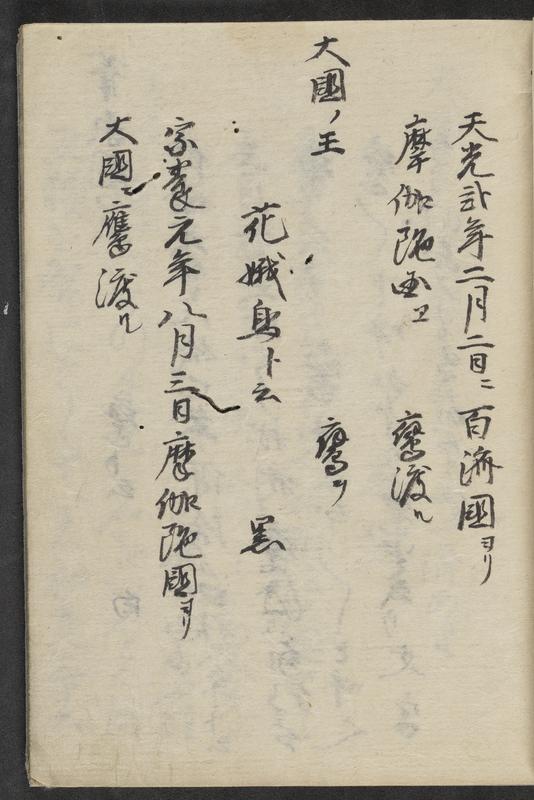 天光弐年二月二日ニ百済國ヨリ
摩伽陁國エ 鷹渡ル
大國ノ王 鷹ヲ
花娥鳥ト云 黒
宗養元年八月三日摩伽陁國ヨリ
大國ニ鷹渡ル